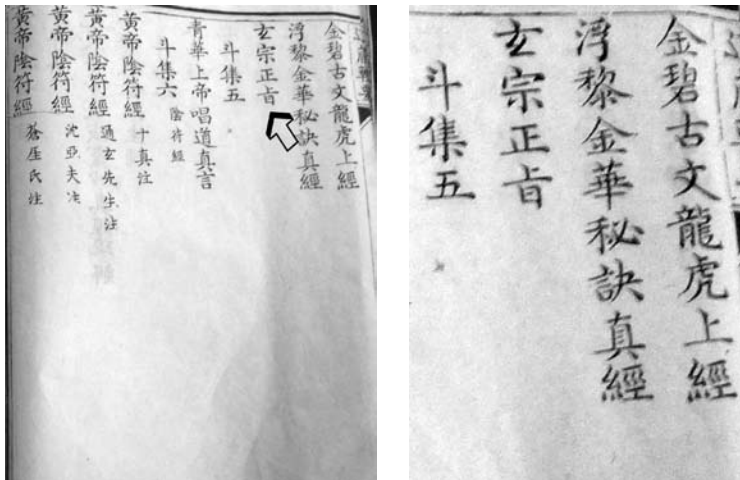 金碧古文龍虎上經
浮黎金華秘訣真經
玄宗正旨
斗集五
青華上帝唱道真言
斗集六 陰符經
黃帝陰符經 十真注
黃帝陰符經 通玄先生注
黃帝陰符經 沈亞夫注
黃帝陰符經 蒼厓氏注
金碧古文龍虎上經
浮黎金華秘訣真經
玄宗正旨
斗集五